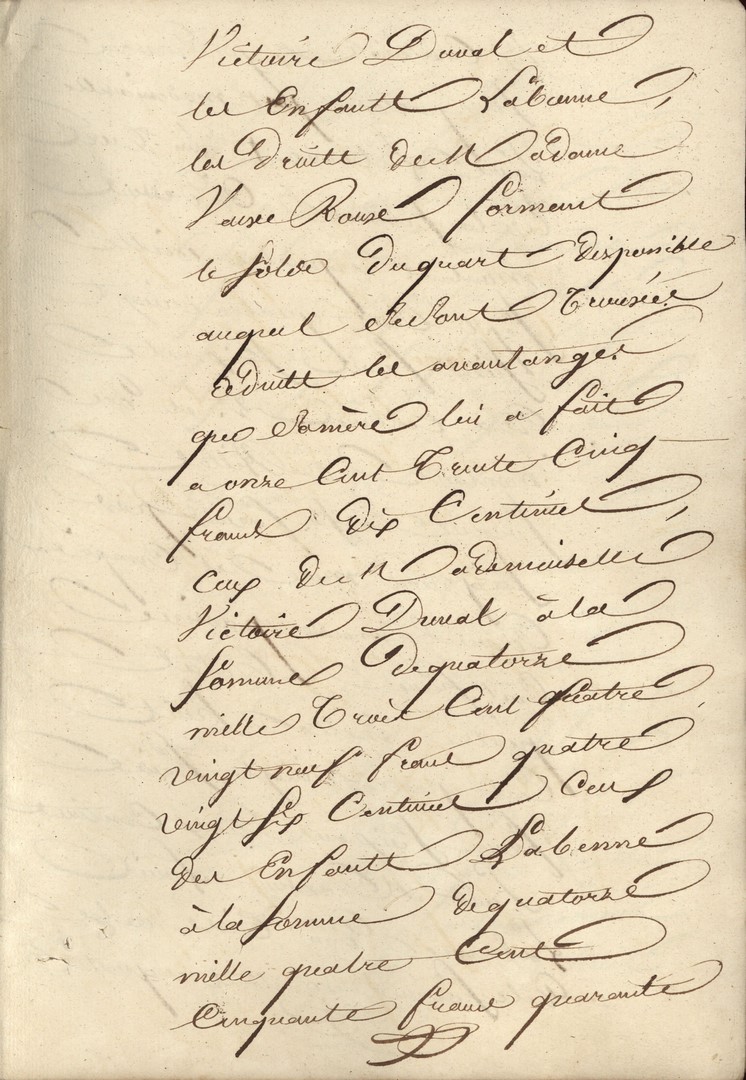 Victoire Duval et
les Enfants Labenne,
les Droits de Madame
Veuve Rouxe formant
le solde du quart disponible
auquel se sont trouvés
réduits les avantanges
que sa mère lui a fait
a onze Cent Trente Cinq
francs dix Centimes,
ceux de Mademoiselle
Victoire Duval à la
somme de quatorze
mille Trois Cent quatre
vingt neuf francs quatre
vingt six Centimes Ceux
des Enfants Labenne
à la somme de quatorze
mille quatre Cent
Cinquante francs quarante